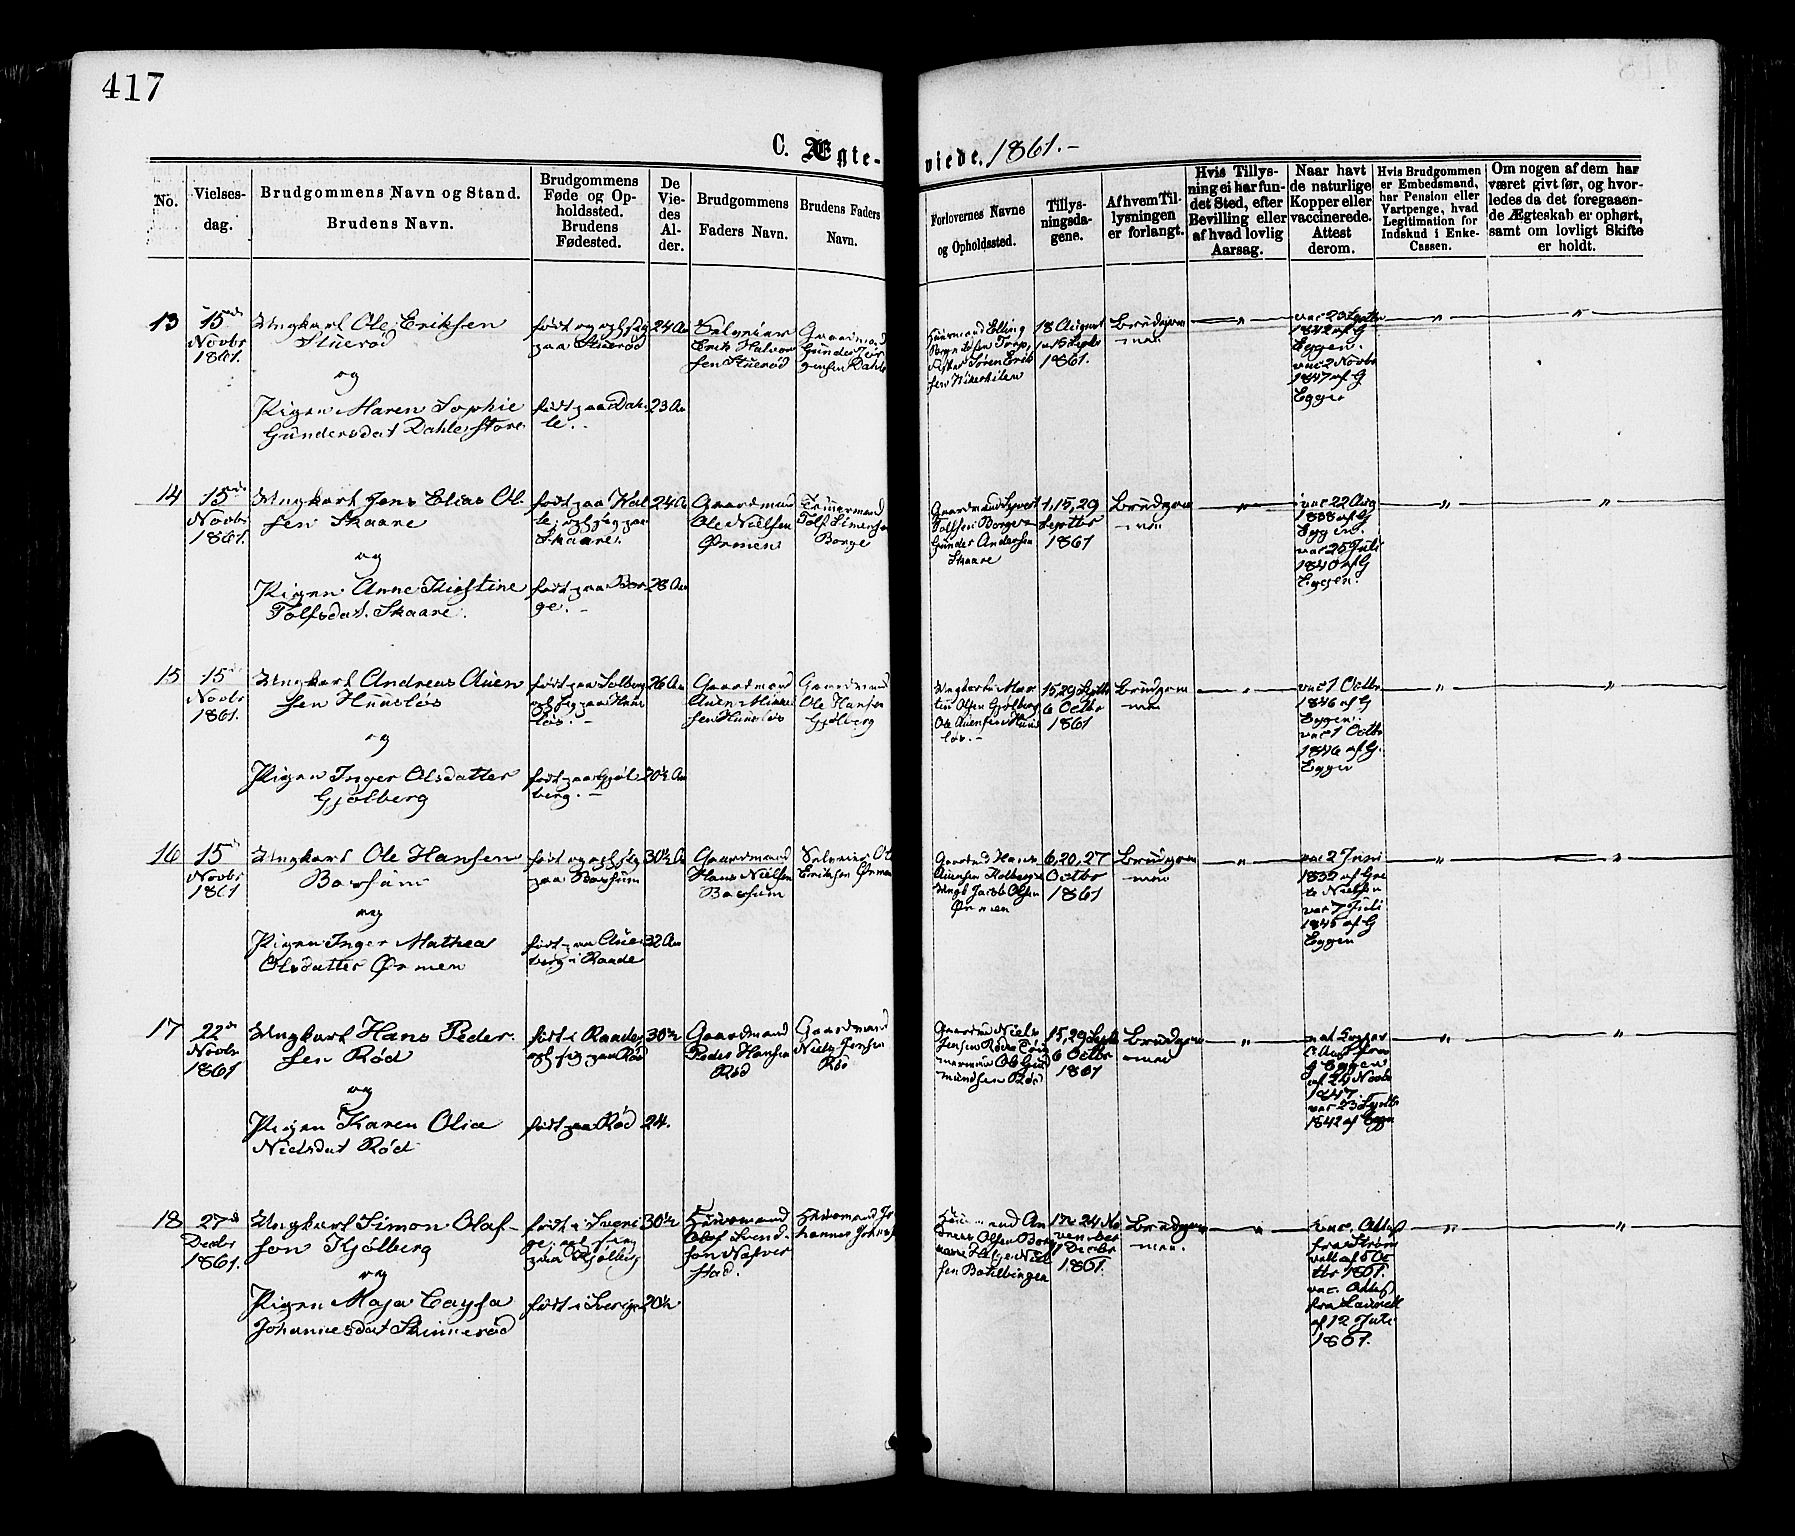 417
C. Ægte-viede, 1861.-
No.
Vielses-
dag.
Brudgommens Navn og Stand.
Brudens Navn.
Brudgommens
Føde og Op-
holdssted.
Brudens
Fødested.
De
Vie-
des
Al-
der.
Brudgommens
Faders Navn.
Brudens Faders
Navn.
Forlovernes Navne
og Opholdssted.
Tillys-
ningsda-
gene.
Af hvem Til-
lysningen
er forlangt.
Hvis Tillys-
ning ei har fun-
det Sted, efter
Bevilling eller
af hvad lovlig
Aarsag.
Naar havt
de naturlige
Kopper eller
vaccinerede.
Attest
derom.
Hvis Brudgommen
er Embedsmand,
har Pension eller
Vartpenge, hvad
Legitimation for
Indskud i Enke-
Cassen.
Om nogen af dem har
været givt før, og hvor-
ledes da det foregaaen-
de Ægteskab er ophørt,
samt om lovligt Skifte
er holdt.
13
15de
Novbr
1861.
Ungkarl Ole Eriksen
Stuerød
og
Pigen Maren Sophie
Gundersdat Dahle store
født og opl. sig
paa Stuerød
født paa Dah-
le.
24 Aa
23 Aa
Selveier
Erik Halvor
sen Stuerød
Gaardmand
Gunder Tor
gensen Dahle
Huusmand Elling
Søren Erik
sen
18 August
1 og 15 Septb
1861.
Brudgom
men
vac 23 Septbr
1842 af G
Eggen.
vac 2 Novbr
1847 af G
Eggen
14
15de
Novbr
1861.
Ungkarl Jens Elias Ol-
sen Skaare
og
Pigen Anne Kirstine
Tolfsdat. Skaare.
født paa
le; opl. sig paa
Skaare.
født paa Bor-
ge.
24 Aa
28 Aa
Gaardmand
Ole Nielsen
Ørmen
Tømermand
Tolf Simensen
Borge
Gaardmand Syvert
Tolfsen Borge
Gunder Andersen
Skaare
1, 15, 29
Septbr
1861
Brudgom
men
vac 22 Aug
1838 af G
Eggen.
vac 25 Juli
1840 af G
Eggen.
15
15de
Novbr
1861.
Ungkarl Andreas Auen
sen Huusløs
og
Pigen Inger Olsdatter
Gjølberg
født paa Solberg
opl. sig paa Huus
løs.
født paa Gjøl
berg.
26 Aa
20½ Aa
Gaardmand
Auen
sen Huusløs
Gaardmand
Ole Hansen
Gjølberg
Ungkarle Mar
tin Olsen Gjølberg
Ole Auensen Huus
løs.
15, 29 Septbr
6 Octbr
1861
Brudgom
men
vac 1 Octbr
1846 af G
Eggen.
vac 1 Octbr
1846 af G.
Eggen
16
15de
Novbr
1861
Ungkarl Ole Hansen
Borsum
og
Pigen Inger Mathea
Olsdatter Ørmen
født og opl. sig
paa Borsum
født paa Auen
berg i Raade
30½ Aa
32 Aa
Gaardmand
Hans Nielsen
Borsum
Selveier Ole
Eriksen Ørmen
Gaardmd Hans
Auensen Kolberg
Ungk Jacob Olsen
Ørmen
6, 20, 27
Octbr
1861
Brudgom
men
vac 2 Juni
1832 af Gre
te Nielsen
vac 7 Juli
1845 af G
Eggen
17
22de
Novbr
1861
Ungkarl Hans Peder-
sen Rød
og
Pigen Karen Olia
Nielsdat Rød
født i Raade,
opl. sig paa Rød
født paa Rød
30½
24.
Gaardmand
Peder Hansen
Rød
Gaardmand
Niels Jensen
Rød
Gaardmd Niels
Jensen Rød
Ole Gud
mundsen Rød
15, 29 Septb
6 Octbr
1861
Brudgom
men
nat Kopper
Att fra
G Eggen
af 24 Novbr
1847.
vac 23 Septbr
1842 af Eggen
18
27de
Decbr
1861.
Ungkarl Simon Olaf-
son Kjølberg
og
Pigen Maja Caysa
Johannesdat Skinnerød
født i Sveri
ge; opl. sig
paa Kjølberg
født i Sverige
30½
20½
Huusmand
Olaf Svend
son
stad.
Huusmand Jo
hannes Johns
Huusmand An
dreas Olsen
Helge Niel
sen
17, 24 No
vember
1 Decbr
1861.
Brudgom
men.
vac. Attest
fra Strøm
vall af 5 Oc
tbr 1861.
vac. Attest
fra
af 12 Juli
1861.